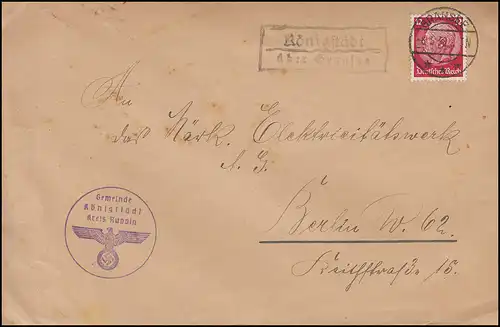 Königstädt
über Gransee
12
Deutsches Reich
An
das Märk. Elektricitätswerk
A. G.
Berlin W. 62.
Keithstraße 15.
Gemeinde
Königstädt
Kreis Ruppin